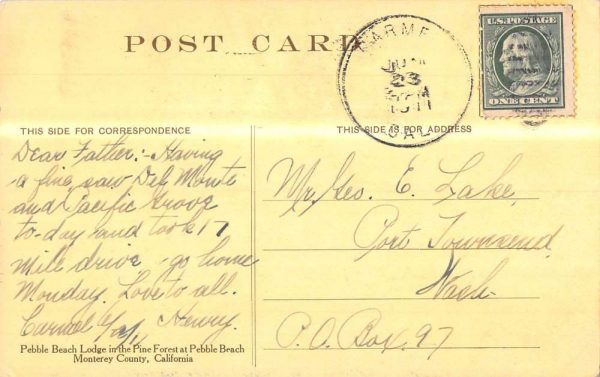 POST CARD
CARMEL
JUN
23
1911
CAL
U.S. POSTAGE
ONE CENT
THIS SIDE FOR CORRESPONDENCE
THIS SIDE IS FOR ADDRESS
Dear Father:- Having
a fine saw Del Monte
and Pacific Grove
to-day and took 17
mile drive - go home
Monday. Love to all.
Carmel Henry.
Mr. Geo. E. Lake,
Port Townsend
Wash-
P.O. Box. 97
Pebble Beach Lodge in the Pine Forest at Pebble Beach
Monterey County, California